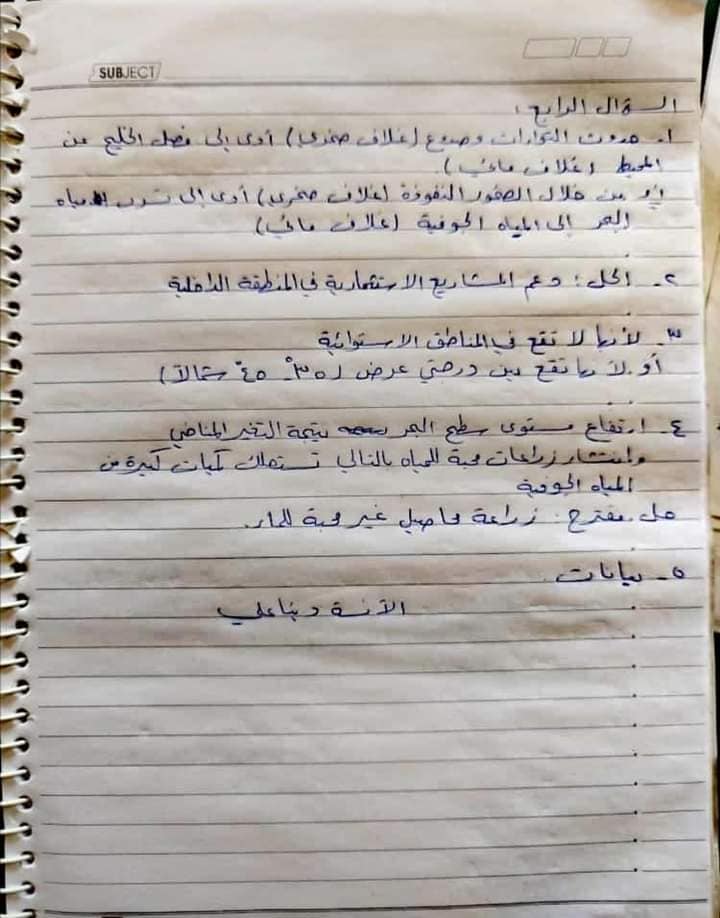 SUBJECT
السؤال الرابع:
١- حدوث انكسارات وصدوع (غلاف صخري) أدى إلى فصل الخليج عن
المحيط (غلاف مائي).
أو من خلال الصخور النفوذة (غلاف صخري) أدى إلى تسرب مياه
البحر إلى المياه الجوفية (غلاف مائي)
٢- الحل: دعم المشاريع الاستثمارية في المنطقة الداخلية
٣- لأنها لا تقع في المناطق الاستوائية
أو لأنها تقع بين درجتي عرض (٣٥°- ٤٥° شمالاً)
٤- ارتفاع مستوى سطح البحر نتيجة التغير المناخي
وانتشار زراعات محبة للمياه بالتالي تستهلك كميات كبيرة من
المياه الجوفية
حل مقترح: زراعة محاصيل غير محبة للماء.
٥- بيانات
الآنسة دينا علي